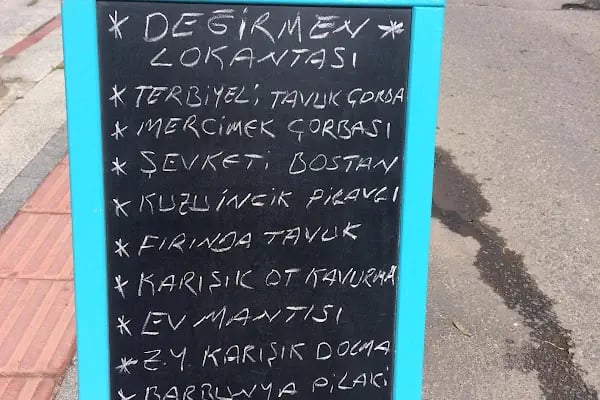 * DEĞİRMEN *
LOKANTASI
* TERBİYELİ TAVUK ÇORBA
* MERCİMEK ÇORBASI
* ŞEVKETİ BOSTAN
* KUZU İNCİK PİLAVLI
* FIRINDA TAVUK
* KARIŞIK OT KAVURMA
* EV MANTISI
* Z.Y KARIŞIK DOLMA
* BARBUNYA PİLAKİ